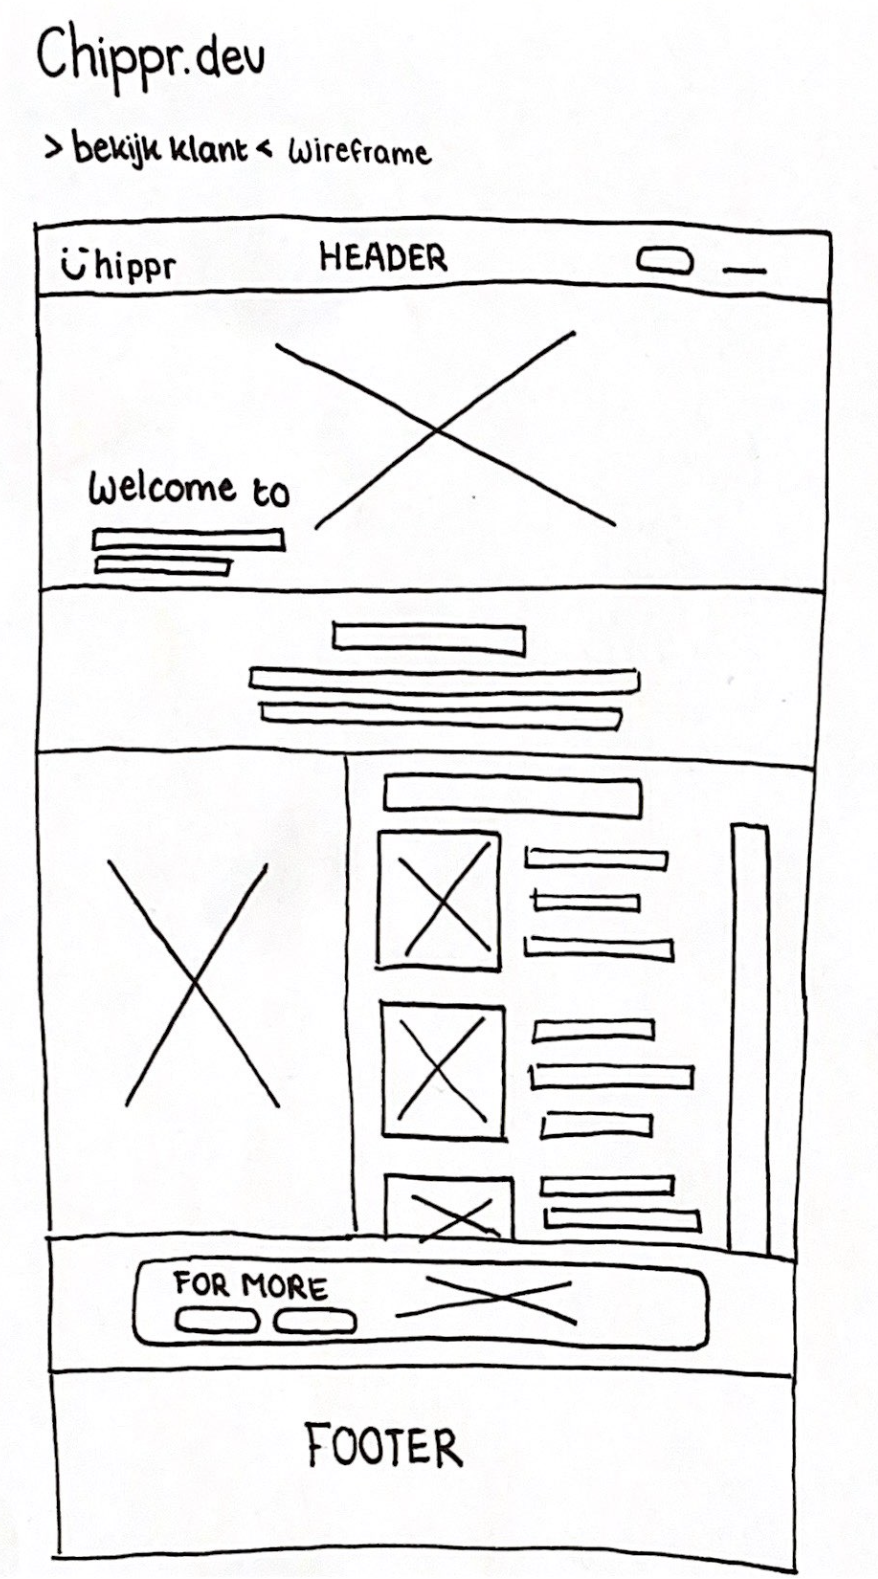 Chippr.dev
> bekijk klant < wireframe
Chippr HEADER
Welcome to
FOR MORE
FOOTER